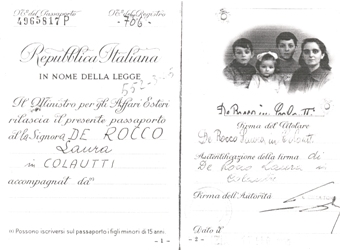 No. del Passaporto
4965817P
No. del Registro
706
Repubblica Italiana
IN NOME DELLA LEGGE
Il Ministro per gli Affari Esteri
rilascia il presente passaporto
al la Signora DE ROCCO
Laura
in COLAUTTI
accompagnat da
(1) Possono iscriversi sul passaporto i figli minori di 15 anni.
- 1 -
De Rocco in
Firma del Titolare
De Rocco Laura in Colautti
Autentificazione della firma di
De Rocco Laura in
Colautti
Firma dell'Autorità
Dato il
- 2 -